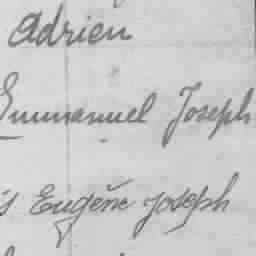 Adrien
Emmanuel Joseph
s Eugène Joseph